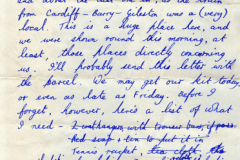 from Cardiff - Barry - Gileston was a (very)
local. This is a huge place here, and
we were shown round this morning, at
least, those places directly concerning
us. I'll probably send this letter with
the parcel. We may get our kit today,
or even as late as Friday. Before I
forget, however, here's a list of what
I need - with trouser bar, if poss.
soap + tin to put it in
Tennis racquet,